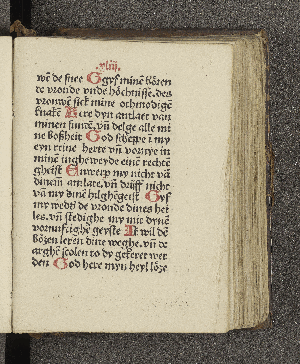 xliij.
wē de snee Gyf minē hōren
te vroude vnde hōchnisse. des
vrouwē sick mine othmodigē
knakē Kere dyn antlaet van
minen sunnē. vñ delge alle mi
ne boßheit God scheppe ī my
eyn reine herte vñ vornye in
minē ingheweyde einē rechtē
gheist En werp my nicht vā
dinem antlate. vñ nicht
vā my dinē hilghēgeist Gyf
my wedd de vroude dines hei
les. vñ stedighe my mit dynē
vornufftighē geyste Ik wil dē
bōzen leren dine weghe. vñ de
arghē scolen to dy gekeret wer
den God here myn heyl lōze